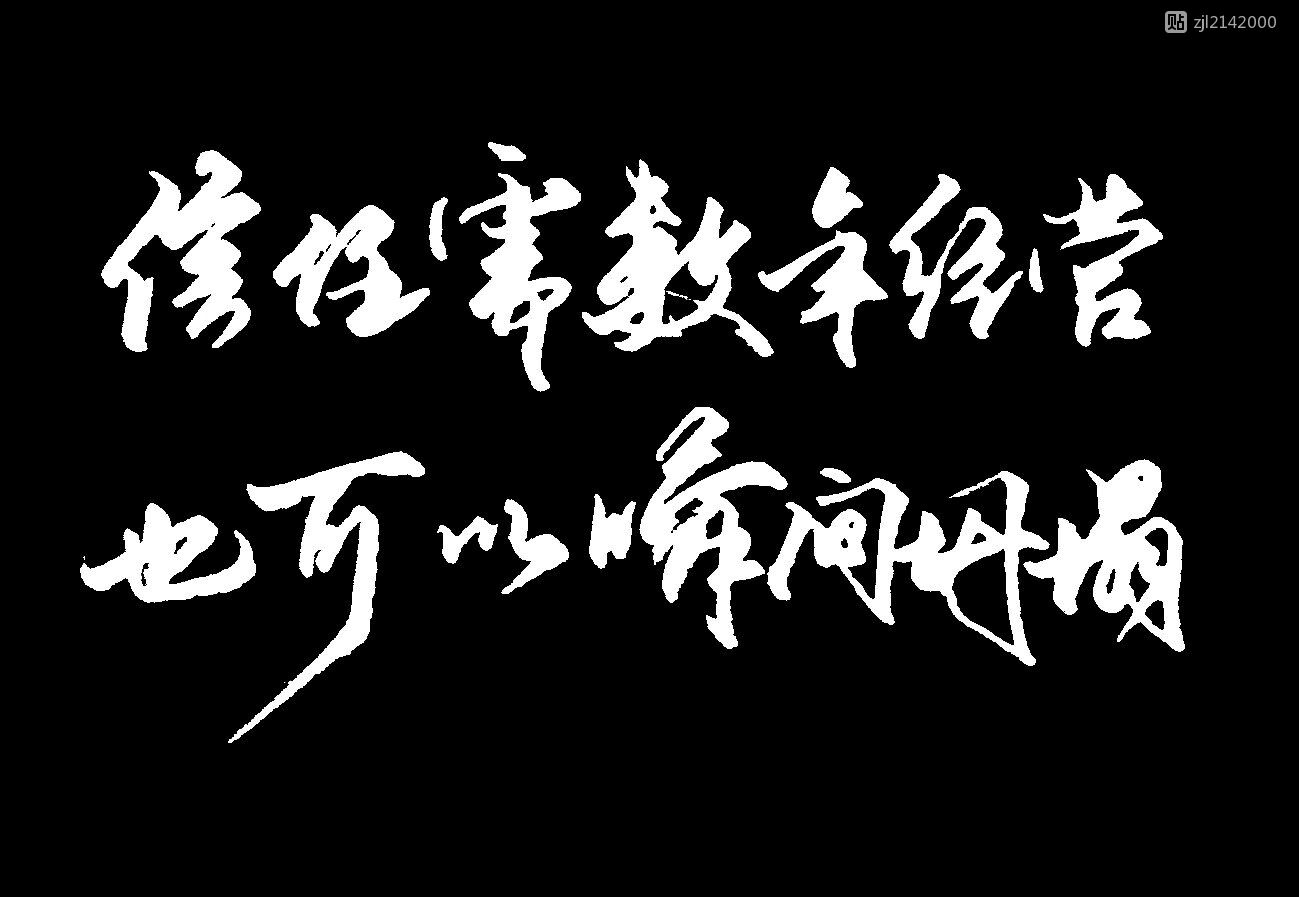 贴 zjl2142000
信任需数年经营
也可以瞬间坍塌